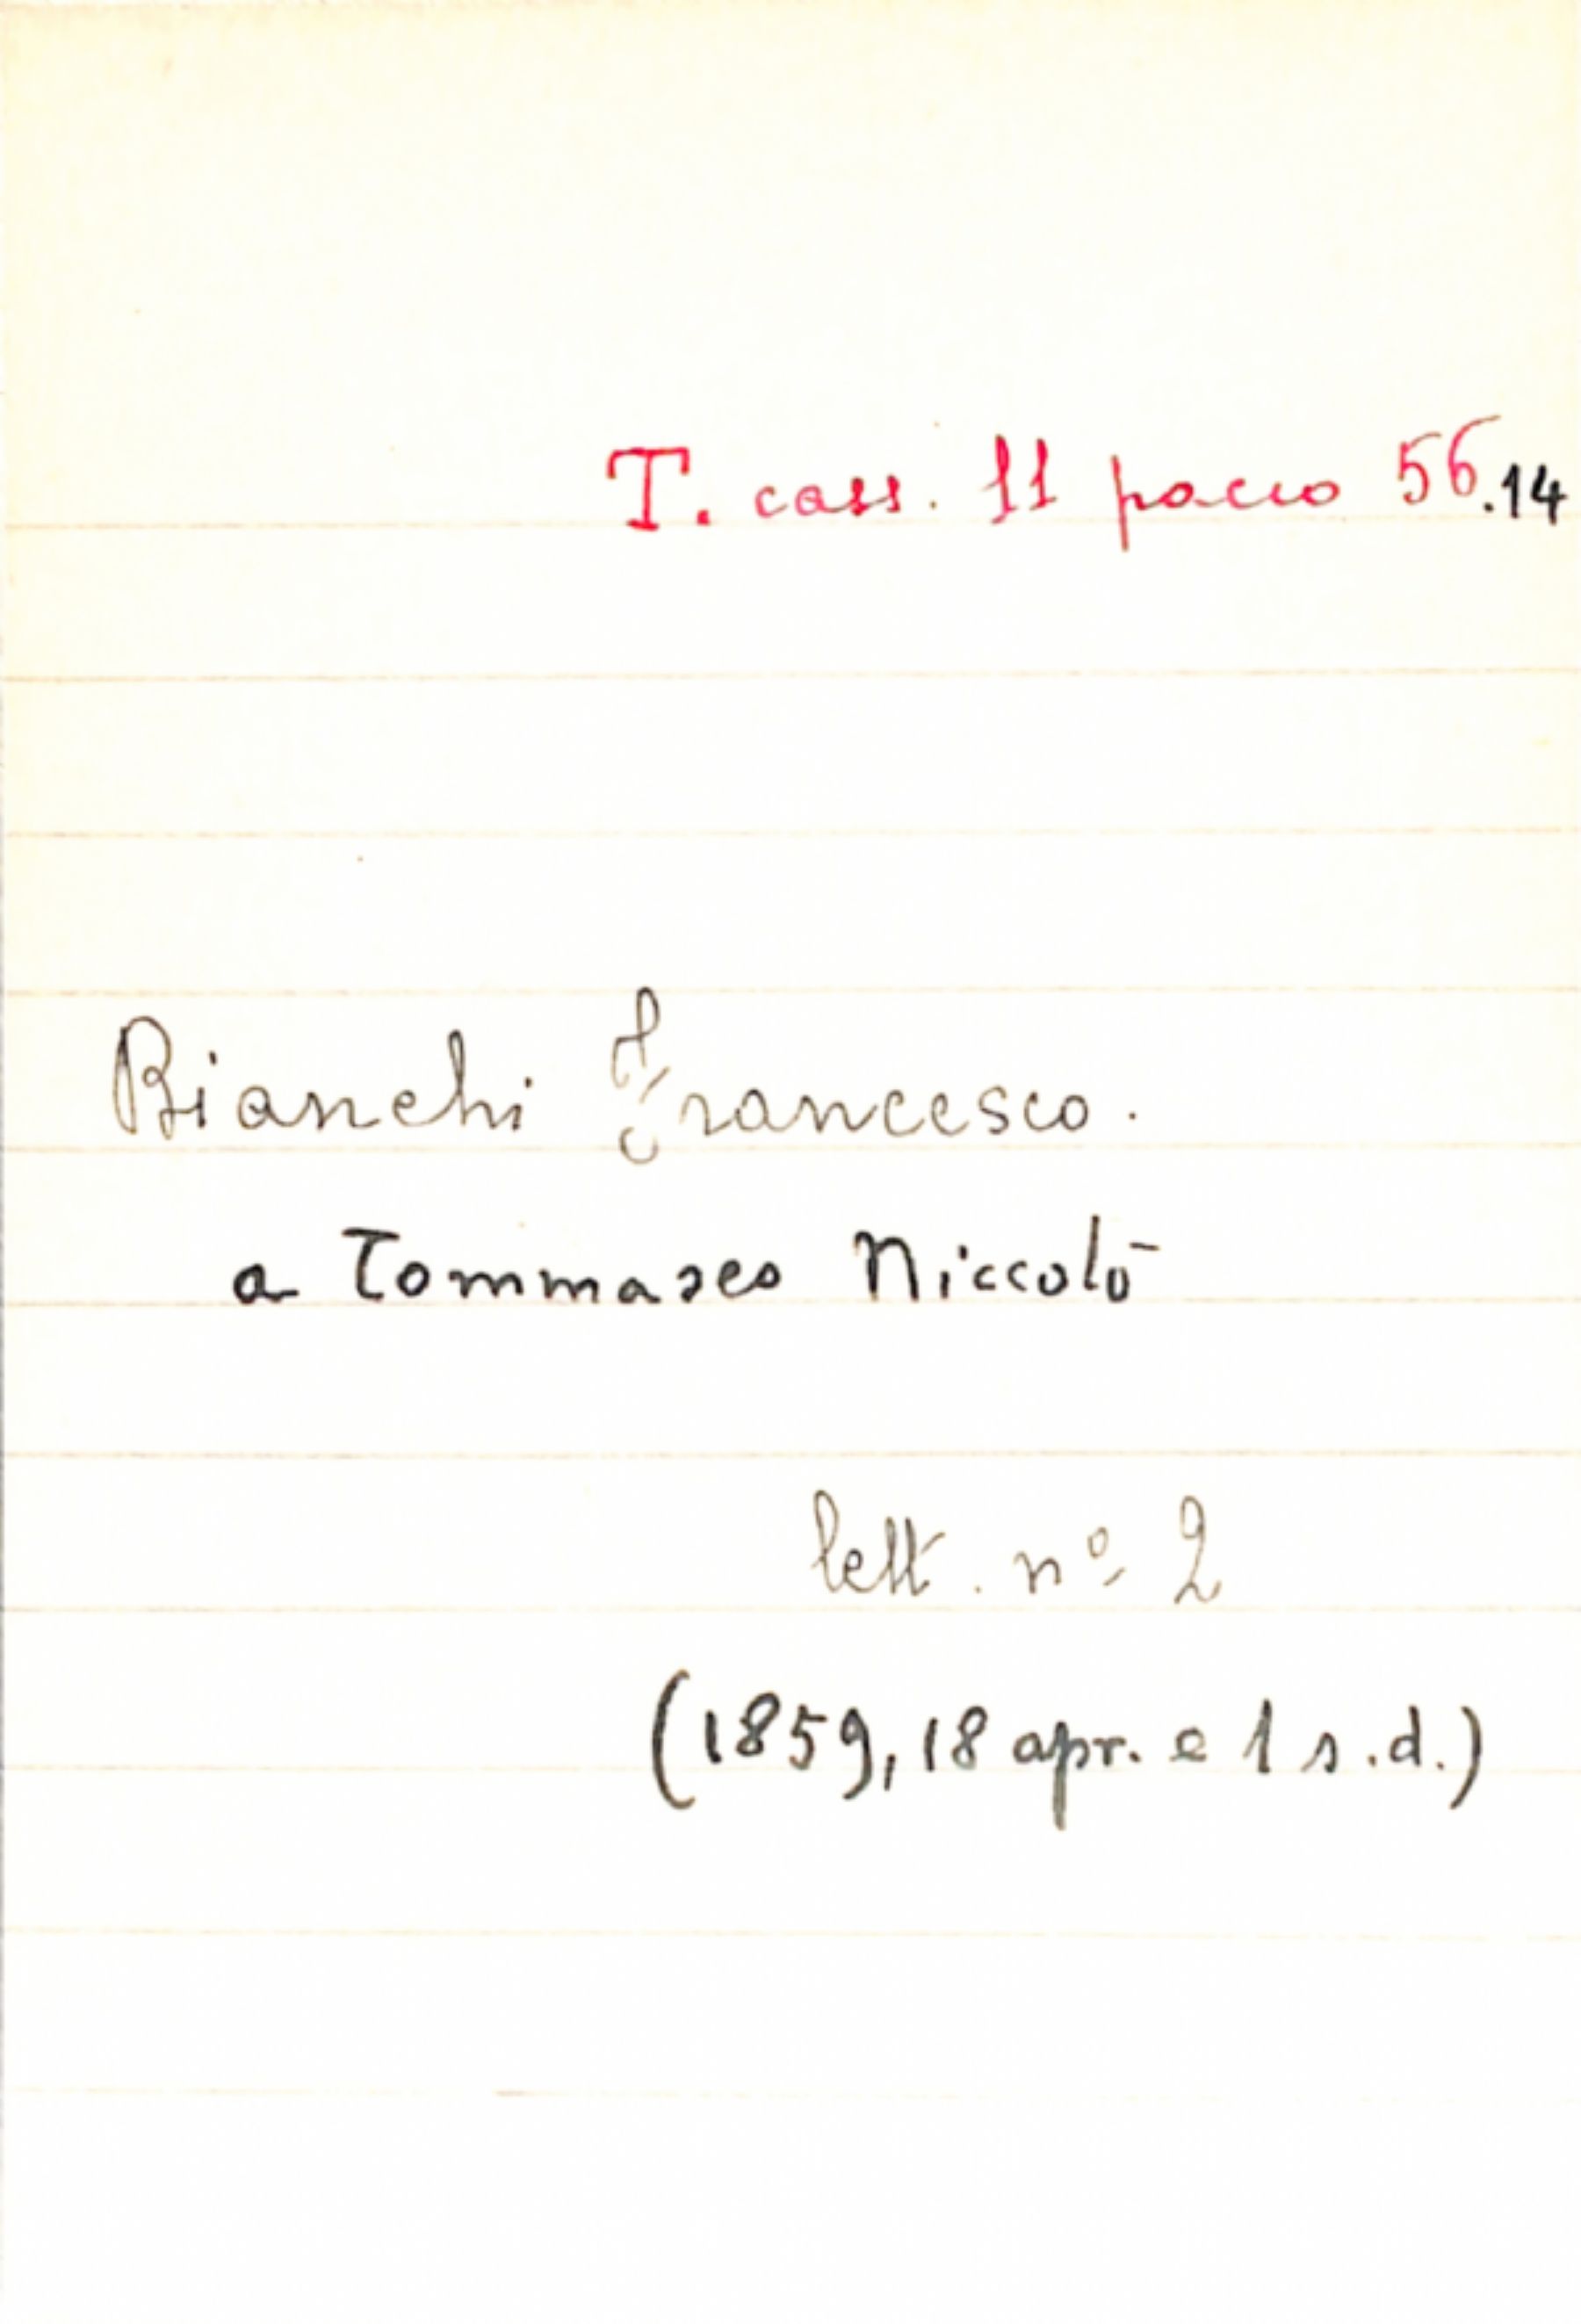 T. cass. 11 pacco 56.14
Bianchi Francesco.
a Tommaseo Niccolò
lett. nº 2
(1859, 18 apr. e 1 s.d.)